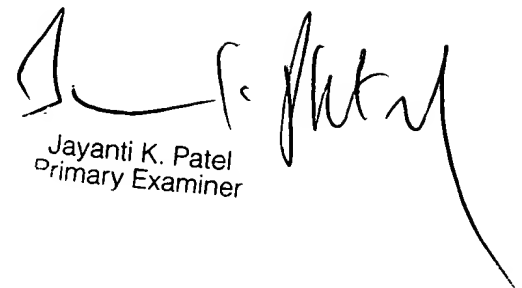 Jayanti K. Patel
Primary Examiner